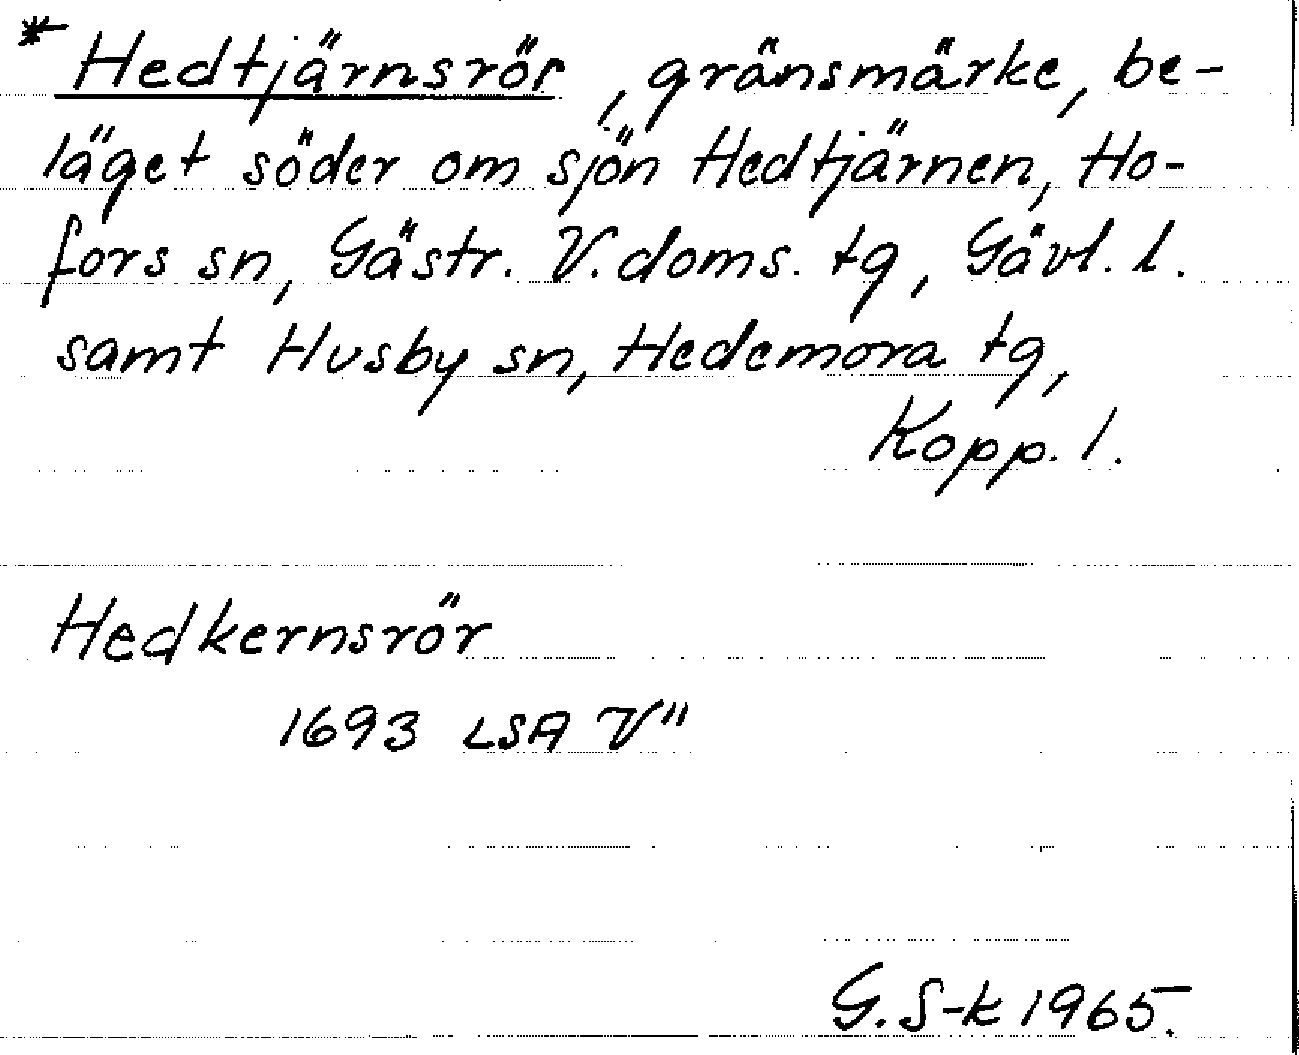 * Hedtjärnsrör, gränsmärke, be-
läget söder om sjön Hedtjärnen, Ho-
fors sn, Gästr. V. doms. tg, Gävl. l.
samt Husby sn, Hedemora tg,
Kopp. l.
Hedkernsrör
1693 LSA V"
G. S-k 1965.